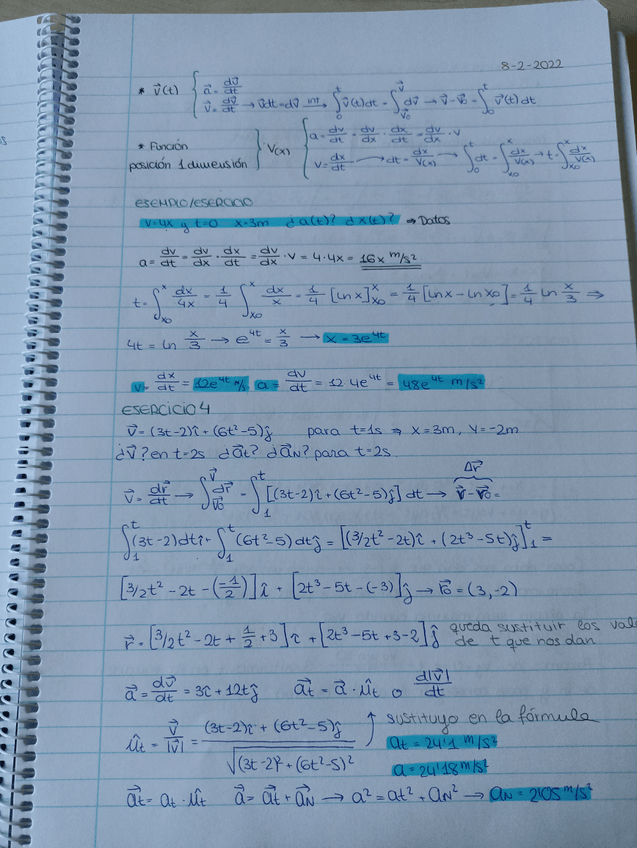 8-2-2022
* v⃗(t) { a⃗ = dv⃗/dt
v⃗ = dr⃗/dt → v⃗dt = dv⃗ int→ ∫₀ᵗ v⃗(t)dt = ∫_v⃗₀^v⃗ dv⃗ → v⃗ - v⃗₀ = ∫₀ᵗ v⃗(t)dt
* Función
posición 1 dimensión } V(x) { a = dv/dt = dv/dx · dx/dt = dv/dx · v
v = dx/dt → dt = dx/v(x) → ∫₀ᵗ dt = ∫_x₀^x dx/v(x) → t = ∫_x₀^x dx/v(x)
EJEMPLO/EJERCICIO
v=4x y t=0 x=3m ¿a(t)? ¿x(t)? ⇒ Datos
a = dv/dt = dv/dx · dx/dt = dv/dx · v = 4·4x = 16x m/s²
t = ∫_x₀^x dx/4x = 1/4 ∫_x₀^x dx/x = 1/4 [ln x]_x₀^x = 1/4 [ln x - ln x₀] = 1/4 ln x/3 ⇒
4t = ln x/3 → e^4t = x/3 → x = 3e^4t
v = dx/dt = 12e^4t m/s a = dv/dt = 12·4e^4t = 48e^4t m/s²
EJERCICIO 4
v⃗ = (3t-2)î + (6t²-5)ĵ para t=1s ⇒ x=3m, y=-2m
¿v⃗? en t=2s ¿a⃗t? ¿a⃗N? para t=2s
v⃗ = dr⃗/dt → ∫_r⃗₀^r⃗ dr⃗ = ∫₁ᵗ [(3t-2)î + (6t²-5)ĵ] dt → r⃗ - r⃗₀ = Δr⃗
∫₁ᵗ (3t-2)dt î + ∫₁ᵗ (6t²-5)dt ĵ = [(3/2t²-2t)î + (2t³-5t)ĵ]₁ᵗ =
[3/2t² - 2t - (-1/2)] î + [2t³ - 5t - (-3)] ĵ → r⃗₀ = (3, -2)
r⃗ = [3/2t² - 2t + 1/2 + 3] î + [2t³ - 5t + 3 - 2] ĵ queda sustituir los val
de t que nos dan
a⃗ = dv⃗/dt = 3î + 12tĵ a⃗t = a⃗ · û_t o d|v⃗|/dt
û_t = v⃗/|v⃗| = (3t-2)î + (6t²-5)ĵ / √((3t-2)² + (6t²-5)²) ↑ sustituyo en la fórmula
at = 24'1 m/s²
a = 24'18 m/s²
a⃗t = at · û_t a⃗ = a⃗t + a⃗N → a² = at² + aN² → aN = 2'05 m/s²